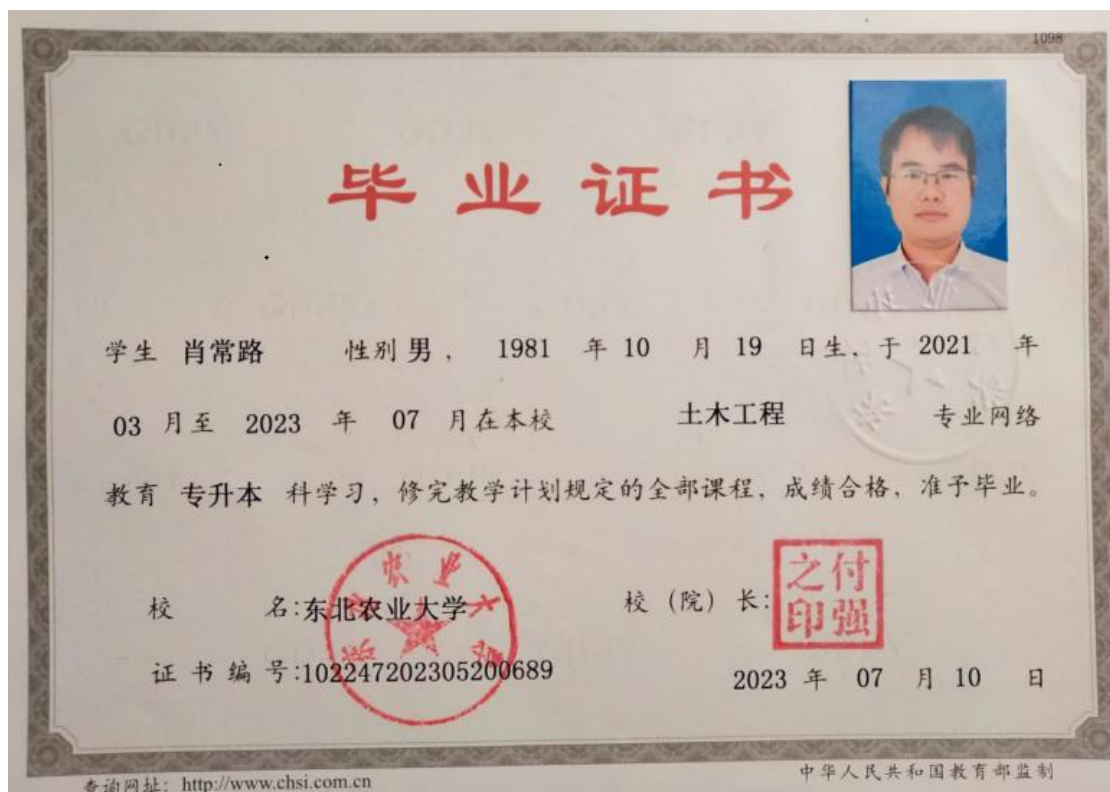 1098
毕业证书
学生 肖常路 性别 男， 1981 年 10 月 19 日生，于 2021 年
03 月至 2023 年 07 月在本校 土木工程 专业网络
教育 专升本 科学习，修完教学计划规定的全部课程，成绩合格，准予毕业。
校 名:东北农业大学 校（院）长:
东北农业大学
付强之印
证书编号:102247202305200689
2023 年 07 月 10 日
查询网址：http://www.chsi.com.cn
中华人民共和国教育部监制